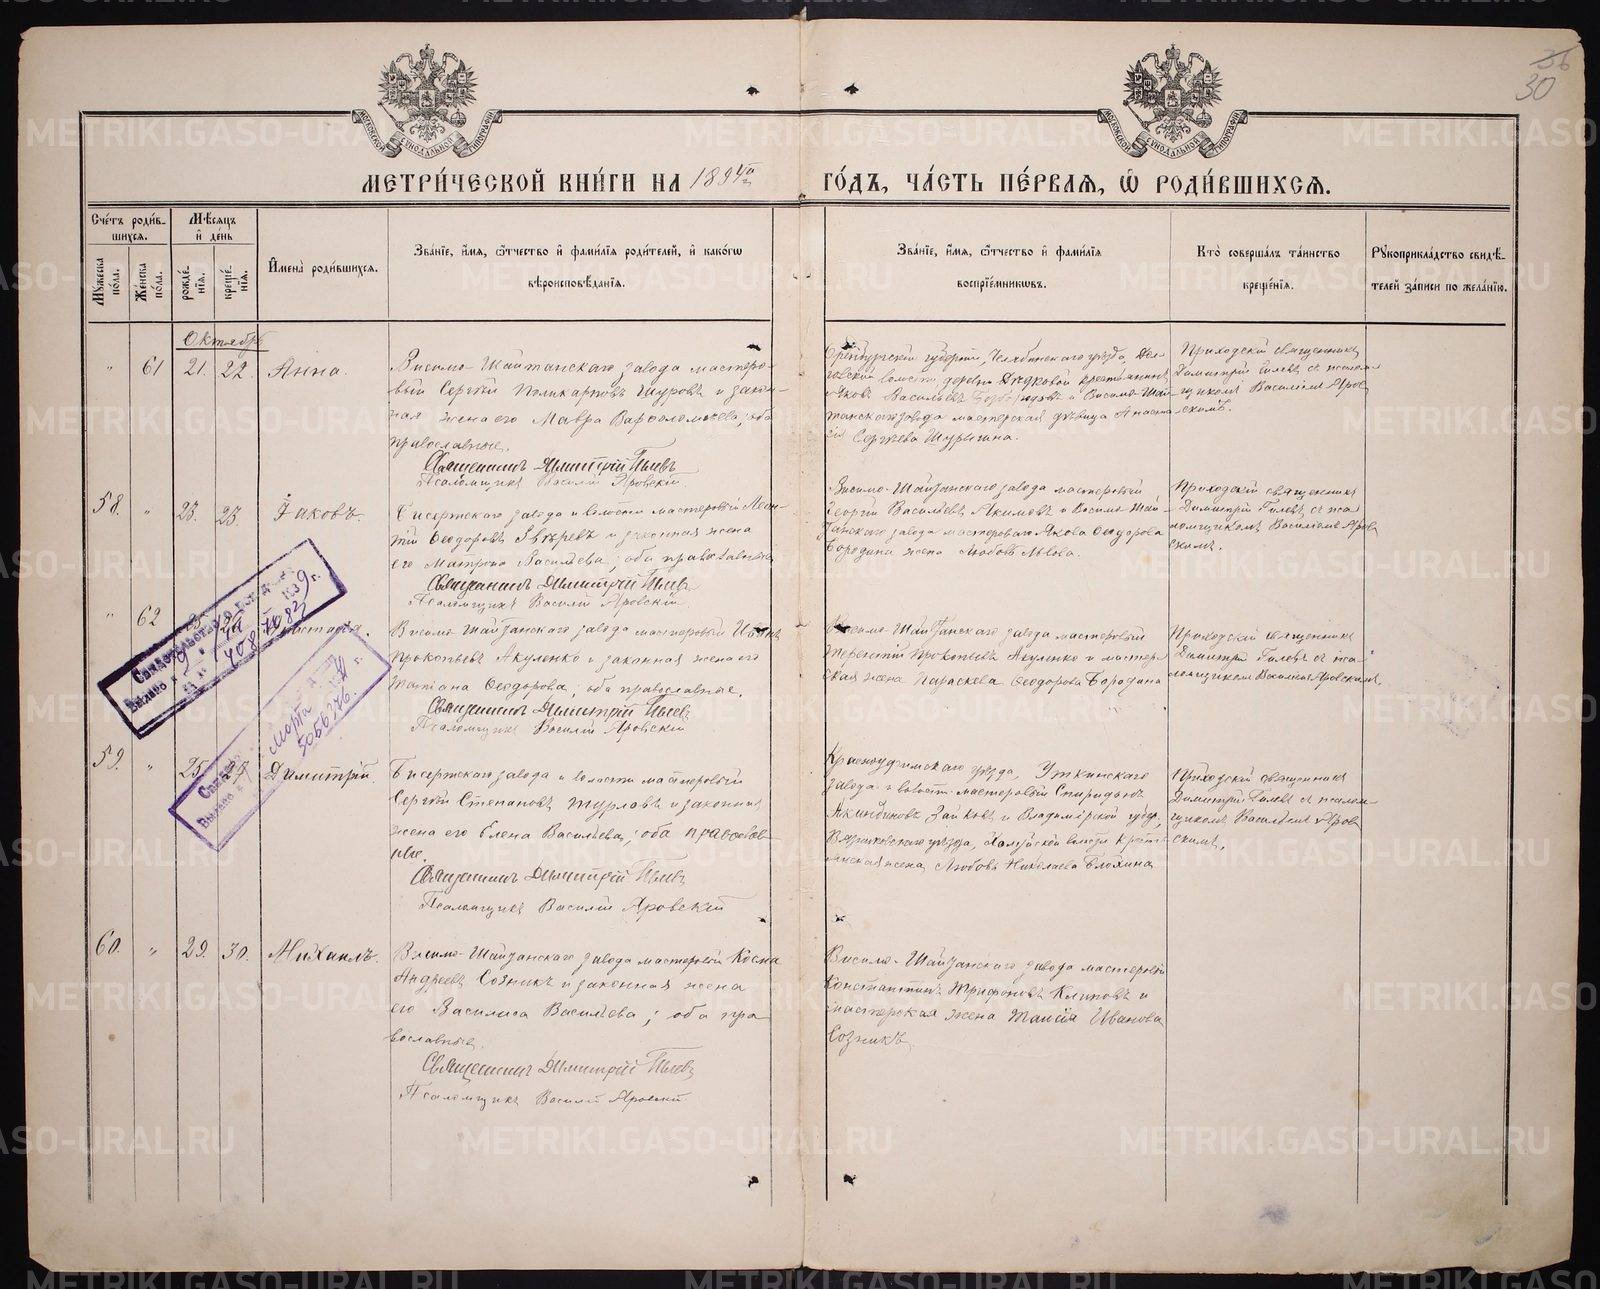 36
30
МОСКОВСКОЙ СѴНОДАЛЬНОЙ ТИПОГРАФІИ
МОСКОВСКОЙ СѴНОДАЛЬНОЙ ТИПОГРАФІИ
МЕТРИ́ЧЕСКОЙ КНИ́ГИ НА 1894й
ГО́ДЪ, ЧА́СТЬ ПЕ́РВАЯ, Ѡ҆ РОДИ́ВШИХСЯ.
Сче́тъ роди́в-
шихся.
Мѣ́сяцъ
и҆ де́нь
Му́жеска по́ла.
Же́нска по́ла.
рожде́нїя.
креще́нїя.
И҆мена̀ роди́вшихся.
Зва́нїе, и҆́мя, ѻ҆́тчество и҆ фами́лїя роди́телей, и҆ како́гѡ
вѣроисповѣ́данїя.
Зва́нїе, и҆́мя, ѻ҆́тчество и҆ фами́лїя
воспрїе́мникѡвъ.
Кто̀ соверша́лъ та́инство
креще́нїя.
Рукоприкла́дство свидѣ́-
телей за́писи по жела́нїю.
Октябрь
" 61 21. 22. Анна.
Висимо-Шайтанскаго завода мастеро-
вый Сергѣй Поликарповъ Шуровъ и закон-
ная жена его Мавра Варѳоломѣева, оба
православные.
Священникъ Димитрій Гилевъ
Псаломщикъ Василій Яровскій.
Оренбургской губерніи, Челябинскаго уѣзда, Дол-
говской волости, деревни крестьянинъ
Яковъ Васильевъ и Висимо-Шай-
танскаго завода мастерская дѣвица Анаста-
сія Сергѣева
Приходскій священникъ
Димитрій Гилевъ съ псалом-
щикомъ Василіемъ Яров-
скимъ.
58. " 23. 23. Іаковъ.
Бисертскаго завода и волости мастеровый Леон-
тій Ѳеодоровъ Звѣревъ и законная жена
его Матрона Васильева, оба православные
Священникъ Димитрій Гилевъ
Псаломщикъ Василій Яровскій.
Висимо-Шайтанскаго завода мастеровый
Георгій Васильевъ Акимовъ и Висимо-Шай-
танскаго завода мастероваго Якова Ѳеодорова
Бородина жена Любовь Львова.
Приходскій священникъ
Димитрій Гилевъ съ пса-
ломщикомъ Василіемъ Яров-
скимъ.
" 62
Висимо-Шайтанскаго завода мастеровый Иванъ
Прокопьевъ Акуленко и законная жена его
Татіана Ѳеодорова, оба православные.
Священникъ Димитрій Гилевъ
Псаломщикъ Василій Яровскій
Висимо-Шайтанскаго завода мастеровый
Терентій Прокопьевъ Акуленко и мастер-
ская жена Параскева Ѳеодорова Бородина
Приходскій священникъ
Димитрій Гилевъ съ пса-
ломщикомъ Василіемъ Яровскимъ.
Свидѣтельство
Выдано
марта
5056376.
59. " 25. Димитрій.
Бисертскаго завода и волости мастеровый
Сергѣй Степановъ Журлавъ и законная
жена его Елена Васильева, оба православ-
ные.
Священникъ Димитрій Гилевъ
Псаломщикъ Василій Яровскій
Красноуфимскаго уѣзда, Уткинскаго
завода и волости мастеровый Спиридонъ
Акиндиновъ Зайковъ и Владимірской губер.,
Вязниковскаго уѣзда, волости кресть-
янская жена Любовь Николаева
Приходскій священникъ
Димитрій Гилевъ съ псалом-
щикомъ Василіемъ Яров-
скимъ.
60. " 29. 30. Михаилъ.
Висимо-Шайтанскаго завода мастеровый Косма
Андреевъ Созникъ и законная жена
его Василиса Васильева; оба пра-
вославные.
Священникъ Димитрій Гилевъ
Псаломщикъ Василій Яровскій.
Висимо-Шайтанскаго завода мастеровый
Константинъ Трифоновъ Климовъ и
мастерская жена Таисія Иванова
Созникъ.
METRIKI.GASO-URAL.RU